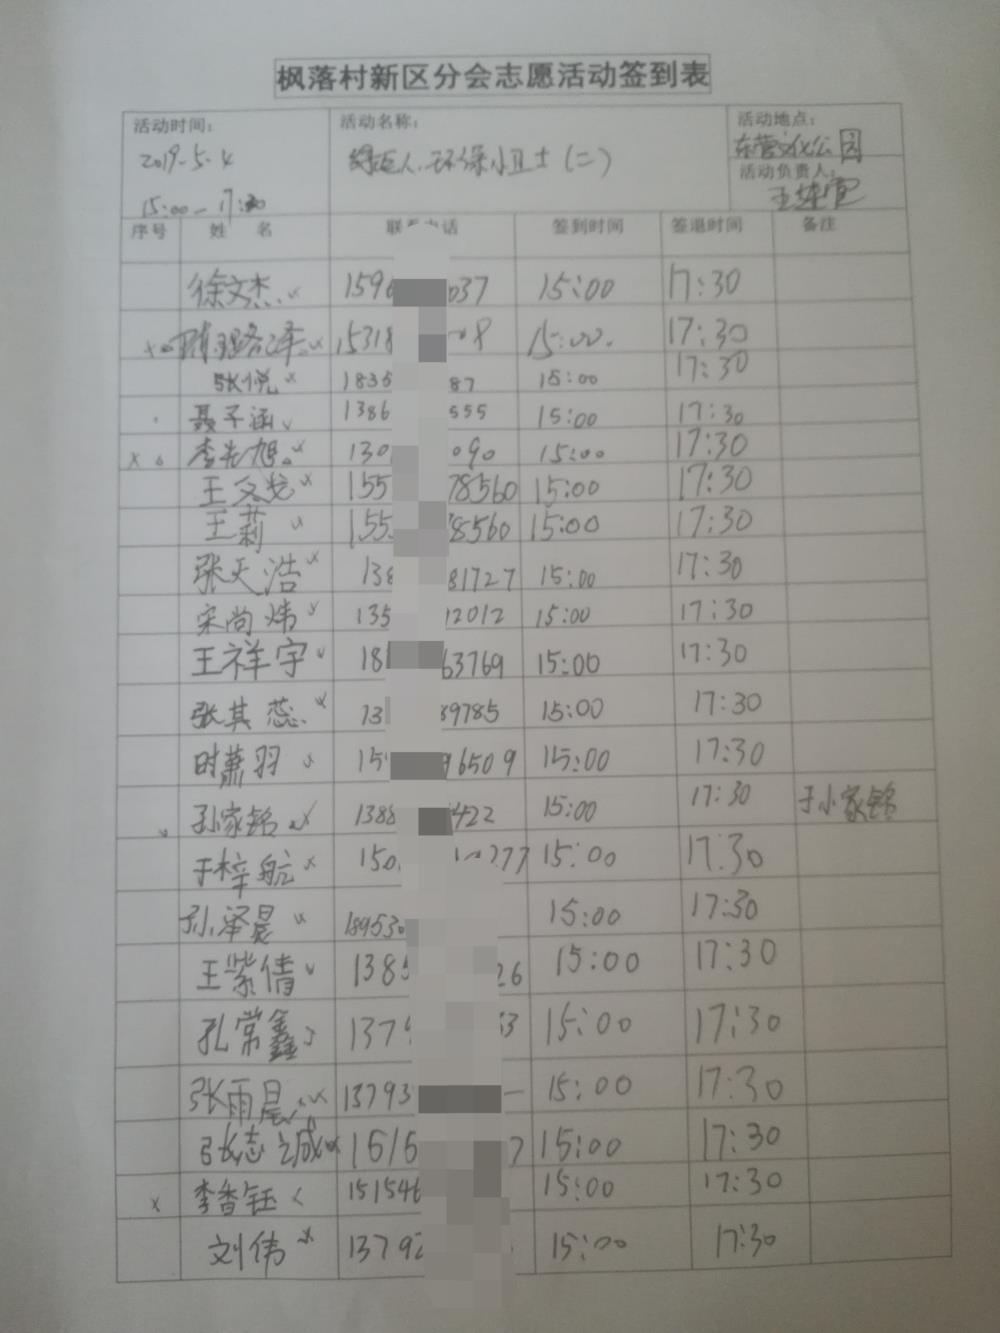 枫落村新区分会志愿活动签到表
活动时间：
2019-5-4
15:00-17:30
活动名称：
环保小卫士（二）
活动地点：
东营文化公园
活动负责人：
序号 姓 名 签到时间 签退时间 备注
徐文杰 159 037 15:00 17:30
15318 8 15:00 17:30
张悦 1835 87 15:00 17:30
聂子涵 1386 555 15:00 17:30
李先旭 130 090 15:00 17:30
王文 155 78560 15:00 17:30
王莉 155 8560 15:00 17:30
张天浩 138 81727 15:00 17:30
宋尚炜 135 2012 15:00 17:30
王祥宇 18 63769 15:00 17:30
张其蕊 13 89785 15:00 17:30
时萧羽 15 96509 15:00 17:30
孙家铭 1388 422 15:00 17:30 于小家铭
于梓航 150 277 15:00 17:30
孙泽晨 189530 15:00 17:30
王紫倩 1385 26 15:00 17:30
孔常鑫 1379 3 15:00 17:30
张雨晨 13793 15:00 17:30
张志诚 1516 7 15:00 17:30
李香钰 151546 15:00 17:30
刘伟 13792 15:00 17:30